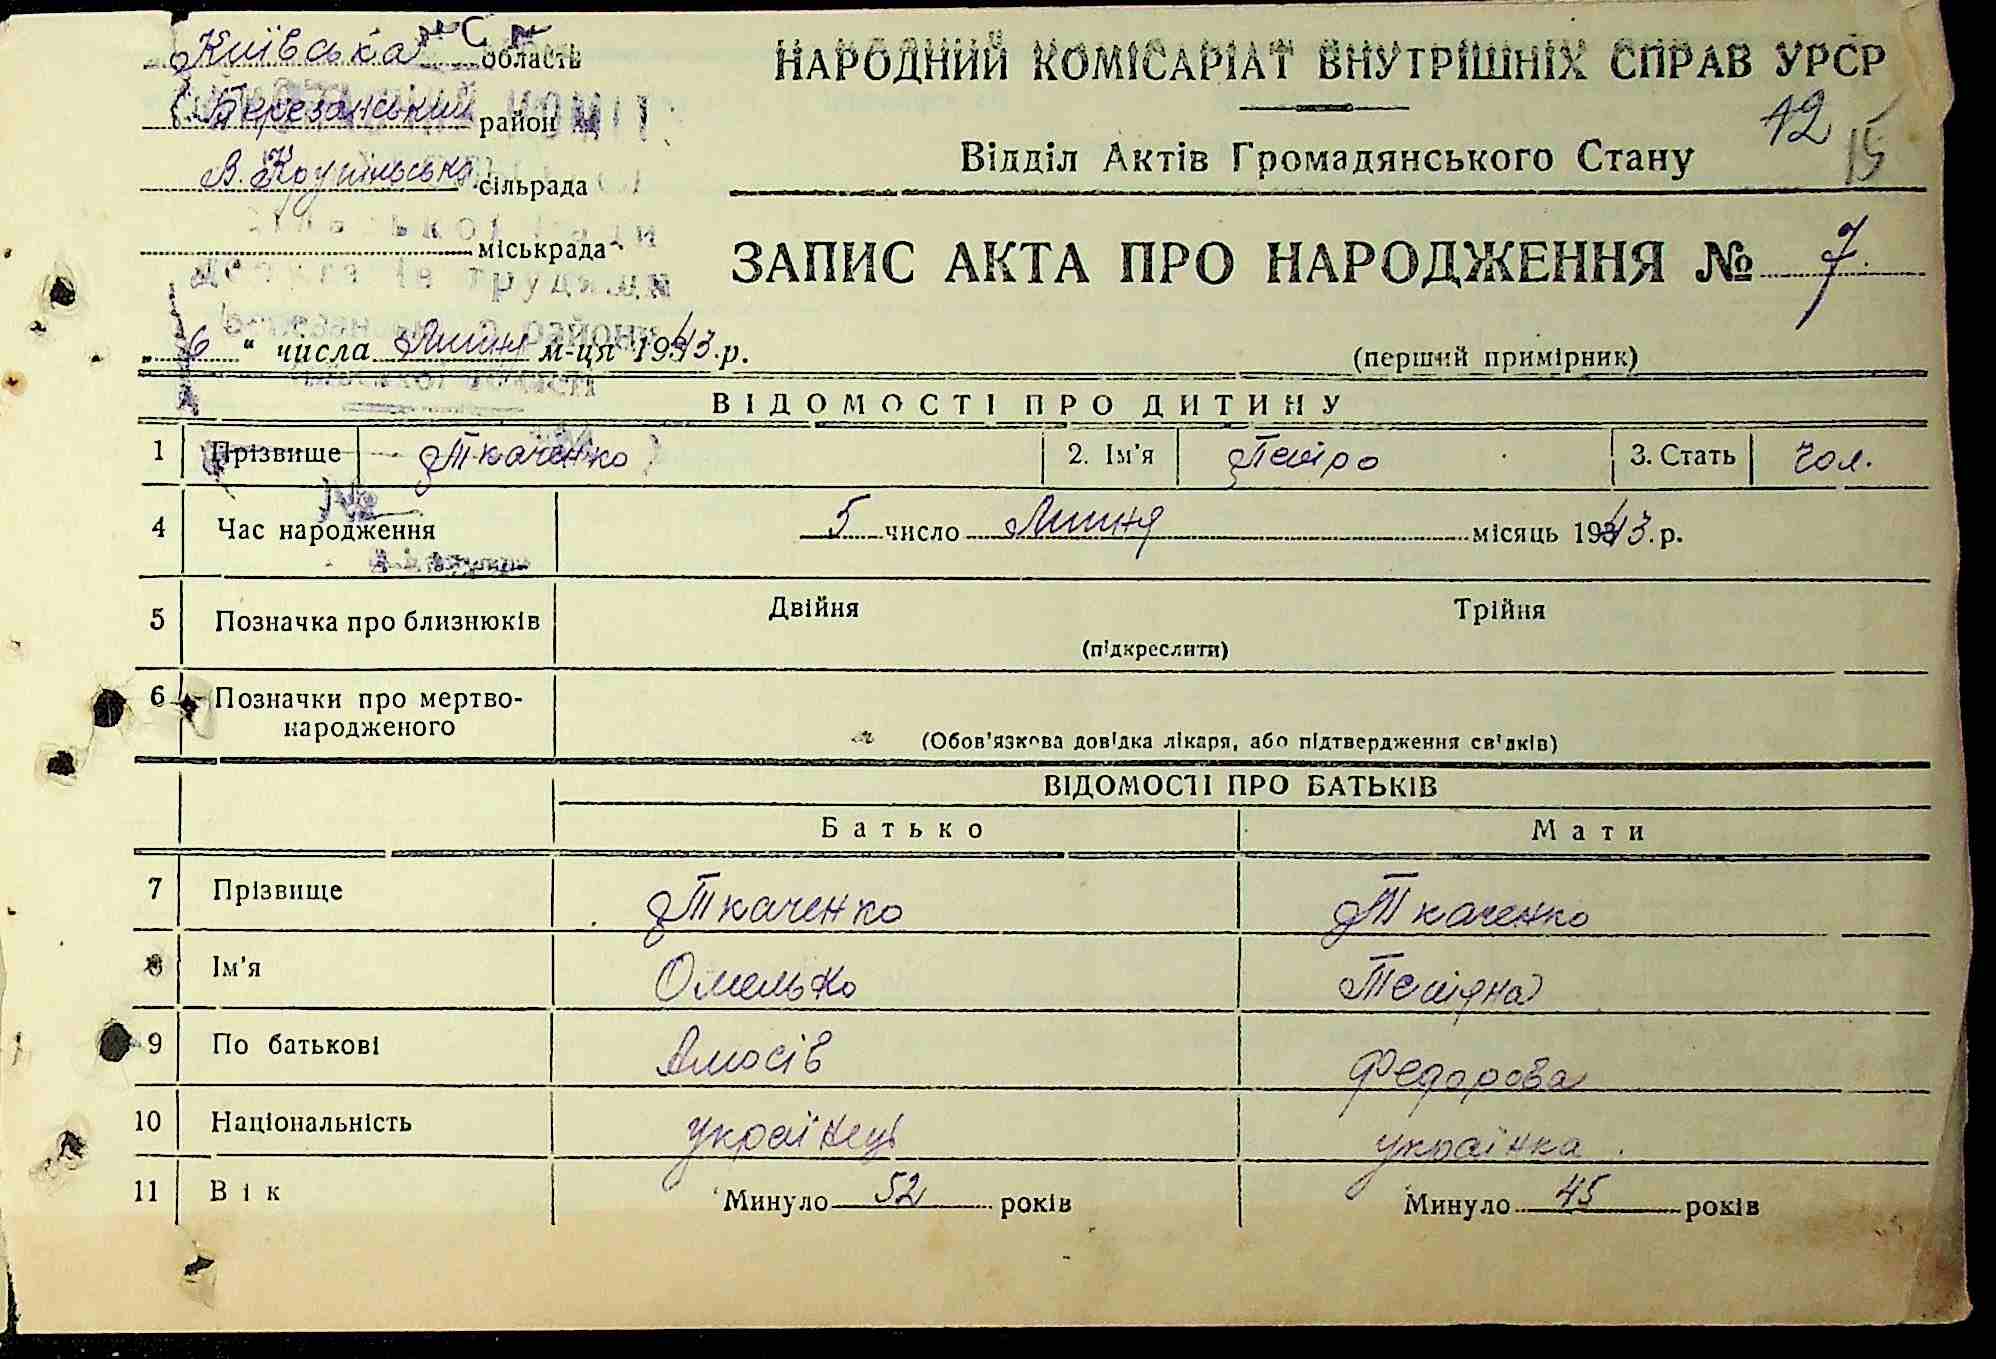 Київська область
Березанський район
В. Крупільська сільрада
міськрада
НАРОДНИЙ КОМІСАРІАТ ВНУТРІШНІХ СПРАВ УРСР
12
15
Відділ Актів Громадянського Стану
ЗАПИС АКТА ПРО НАРОДЖЕННЯ № 7
„ 6 “ числа Липня м-ця 1943 р.
(перший примірник)
ВІДОМОСТІ ПРО ДИТИНУ
1 Прізвище Ткаченко 2. Ім'я Петро 3. Стать чол.
4 Час народження 5 число Липня місяць 1943 р.
5 Позначка про близнюків Двійня Трійня
(підкреслити)
6 Позначки про мертво-
народженого
(Обов'язкова довідка лікаря, або підтвердження свідків)
ВІДОМОСТІ ПРО БАТЬКІВ
Батько Мати
7 Прізвище Ткаченко Ткаченко
8 Ім'я Омелько Тетяна
9 По батькові Амосів Федорова
10 Національність українець українка
11 Вік Минуло 52 років Минуло 45 років